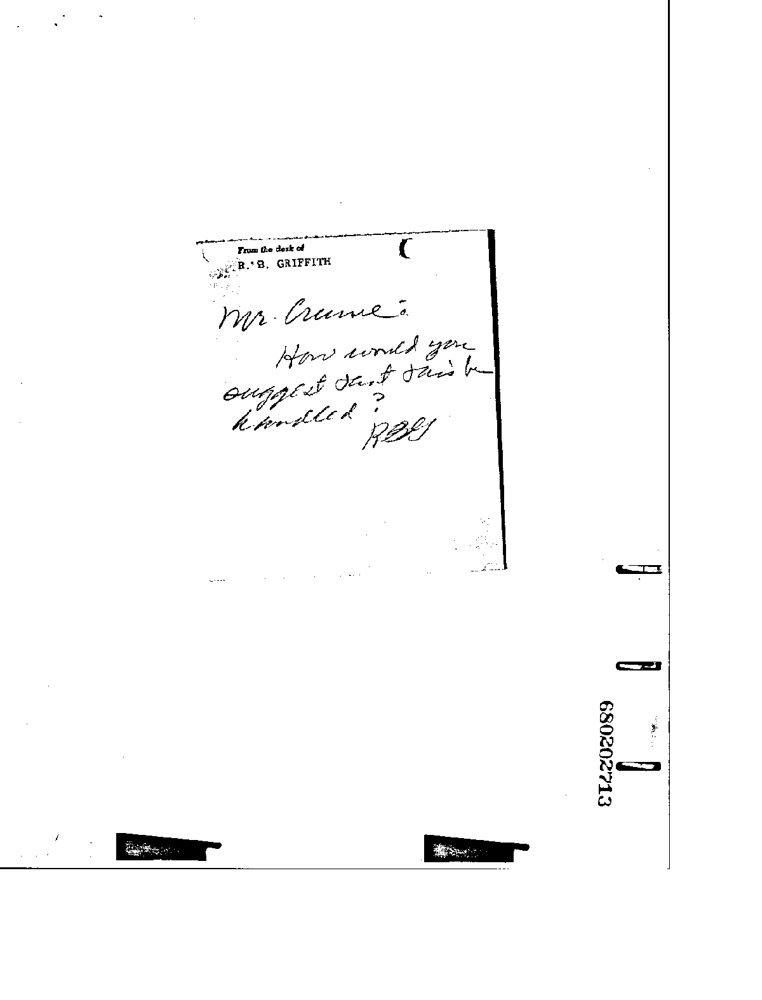 From the desk of
R. B. GRIFFITH
Mr. Crume:
How would you
suggest that this be
handled?
RBG
680202713